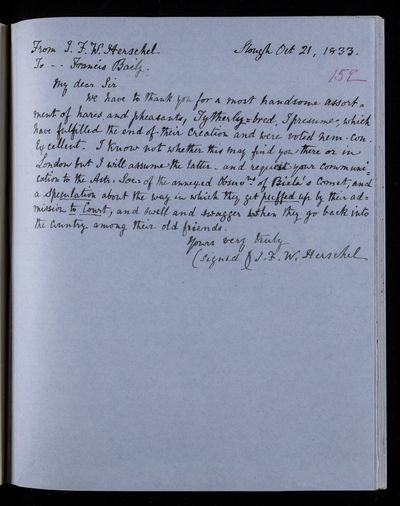 From J. F. W. Herschel. Slough Oct 21, 1833.
To -- Francis Baily. 152
My dear Sir
We have to thank you for a most handsome assort=
ment of hares and pheasants, Tytherley=bred, I presume, which
have fulfilled the end of their Creation and were voted nem. con.
Excellent. I know not whether this may find you there or in
London but I will assume the latter - and request your communi=
cation to the Astr. Soc. of the annexed Obsns. of Biela's Comet, and
a Speculation about the way in which they get puffed up by their ad=
mission to Court, and swell and swagger when they go back into
the Country among their old friends.
Yours very truly
(signed) J. F. W. Herschel